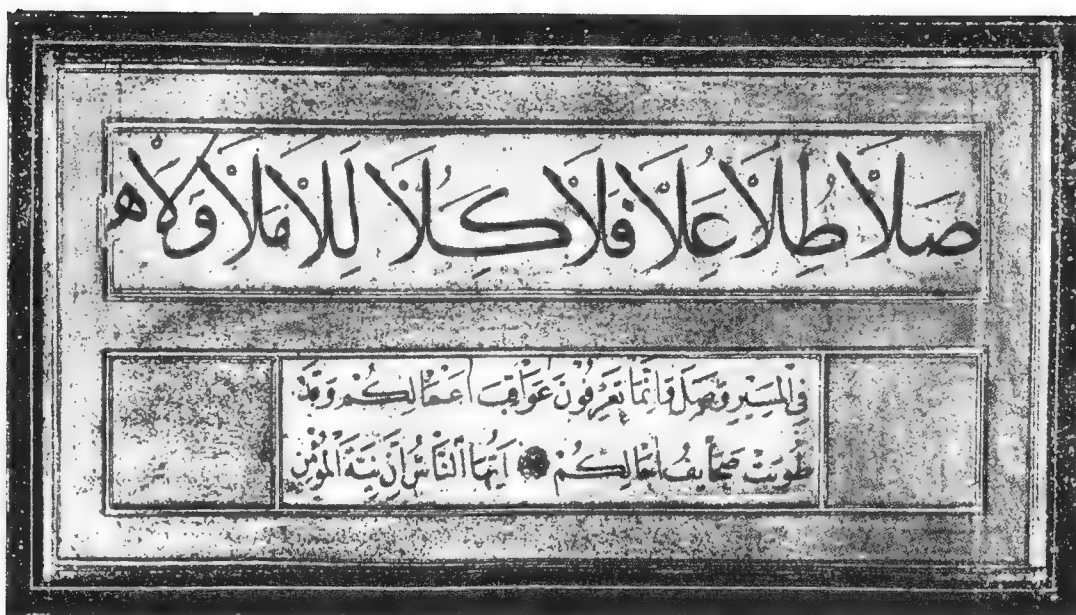 صلا طلا علا فلا كلا للا ملا ولا ه
في المسير وصل وانما تعرفون عواقب اعمالكم وقد
طويت صحايف اجالكم ايها الناس ان نية المؤمن